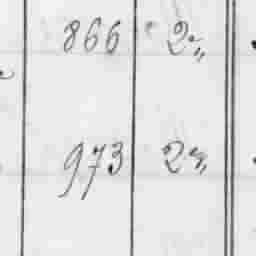 866 2 "
973 2 "